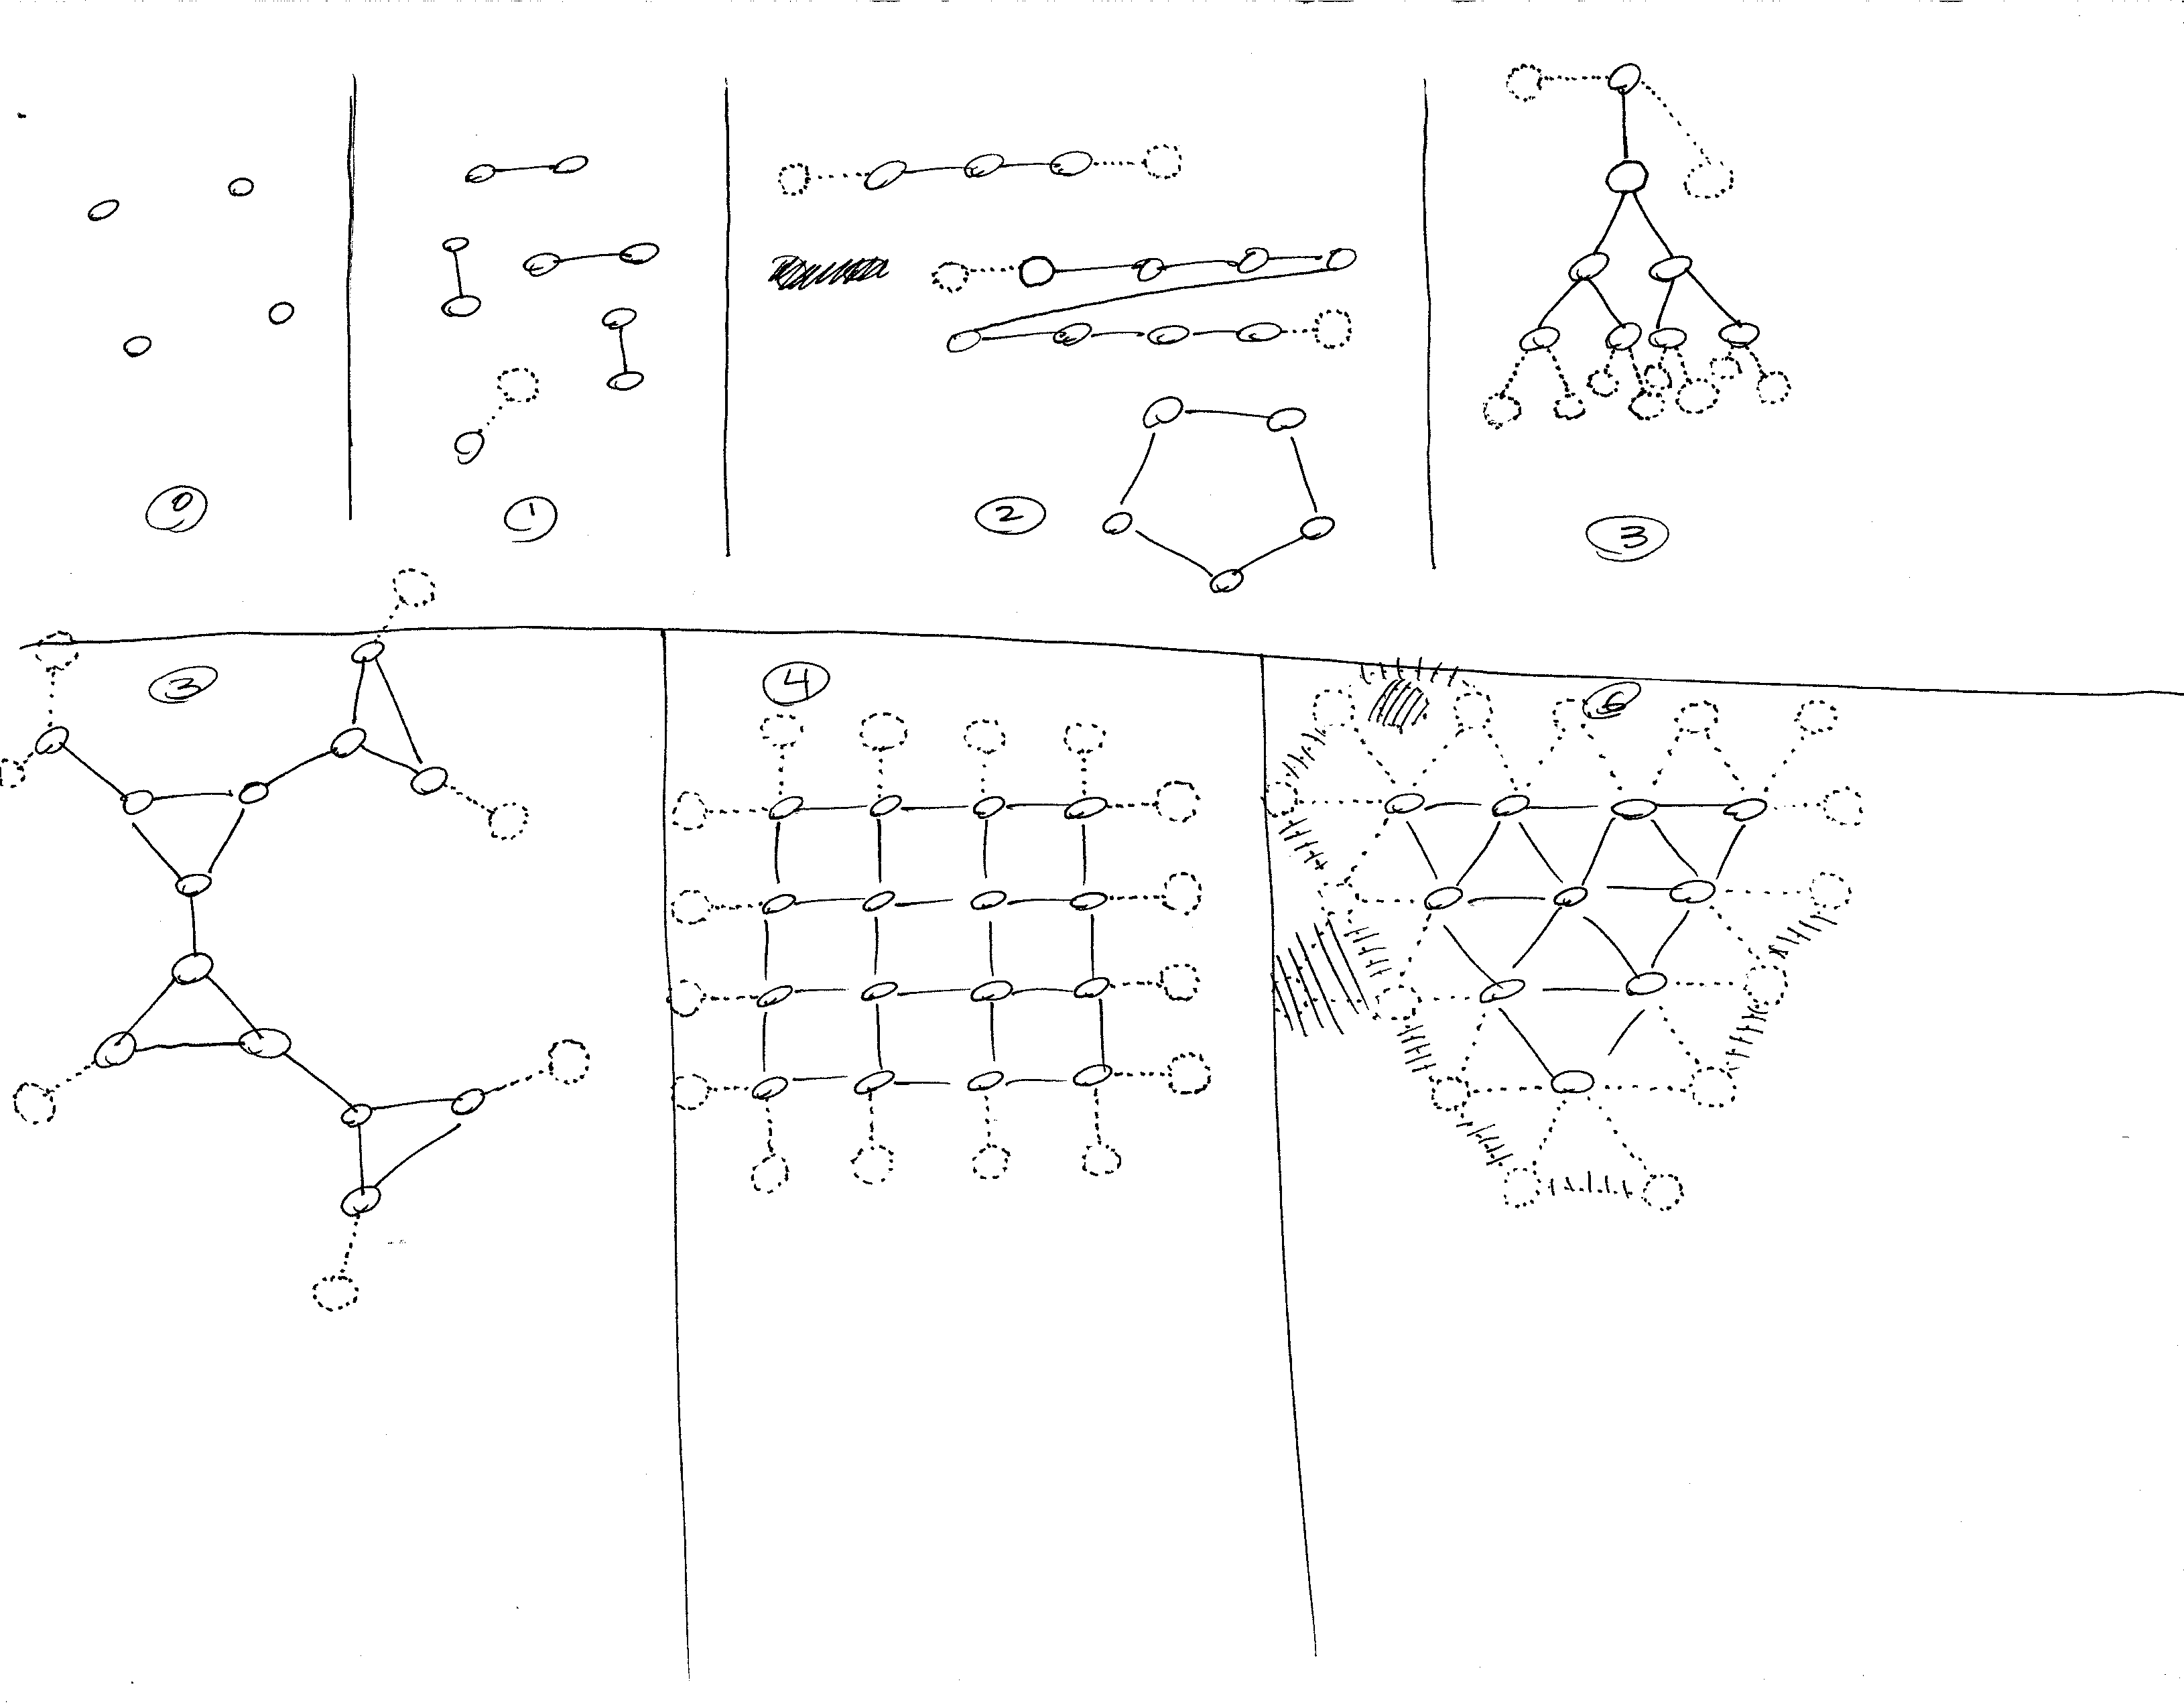 0
1
2
3
3
4
6